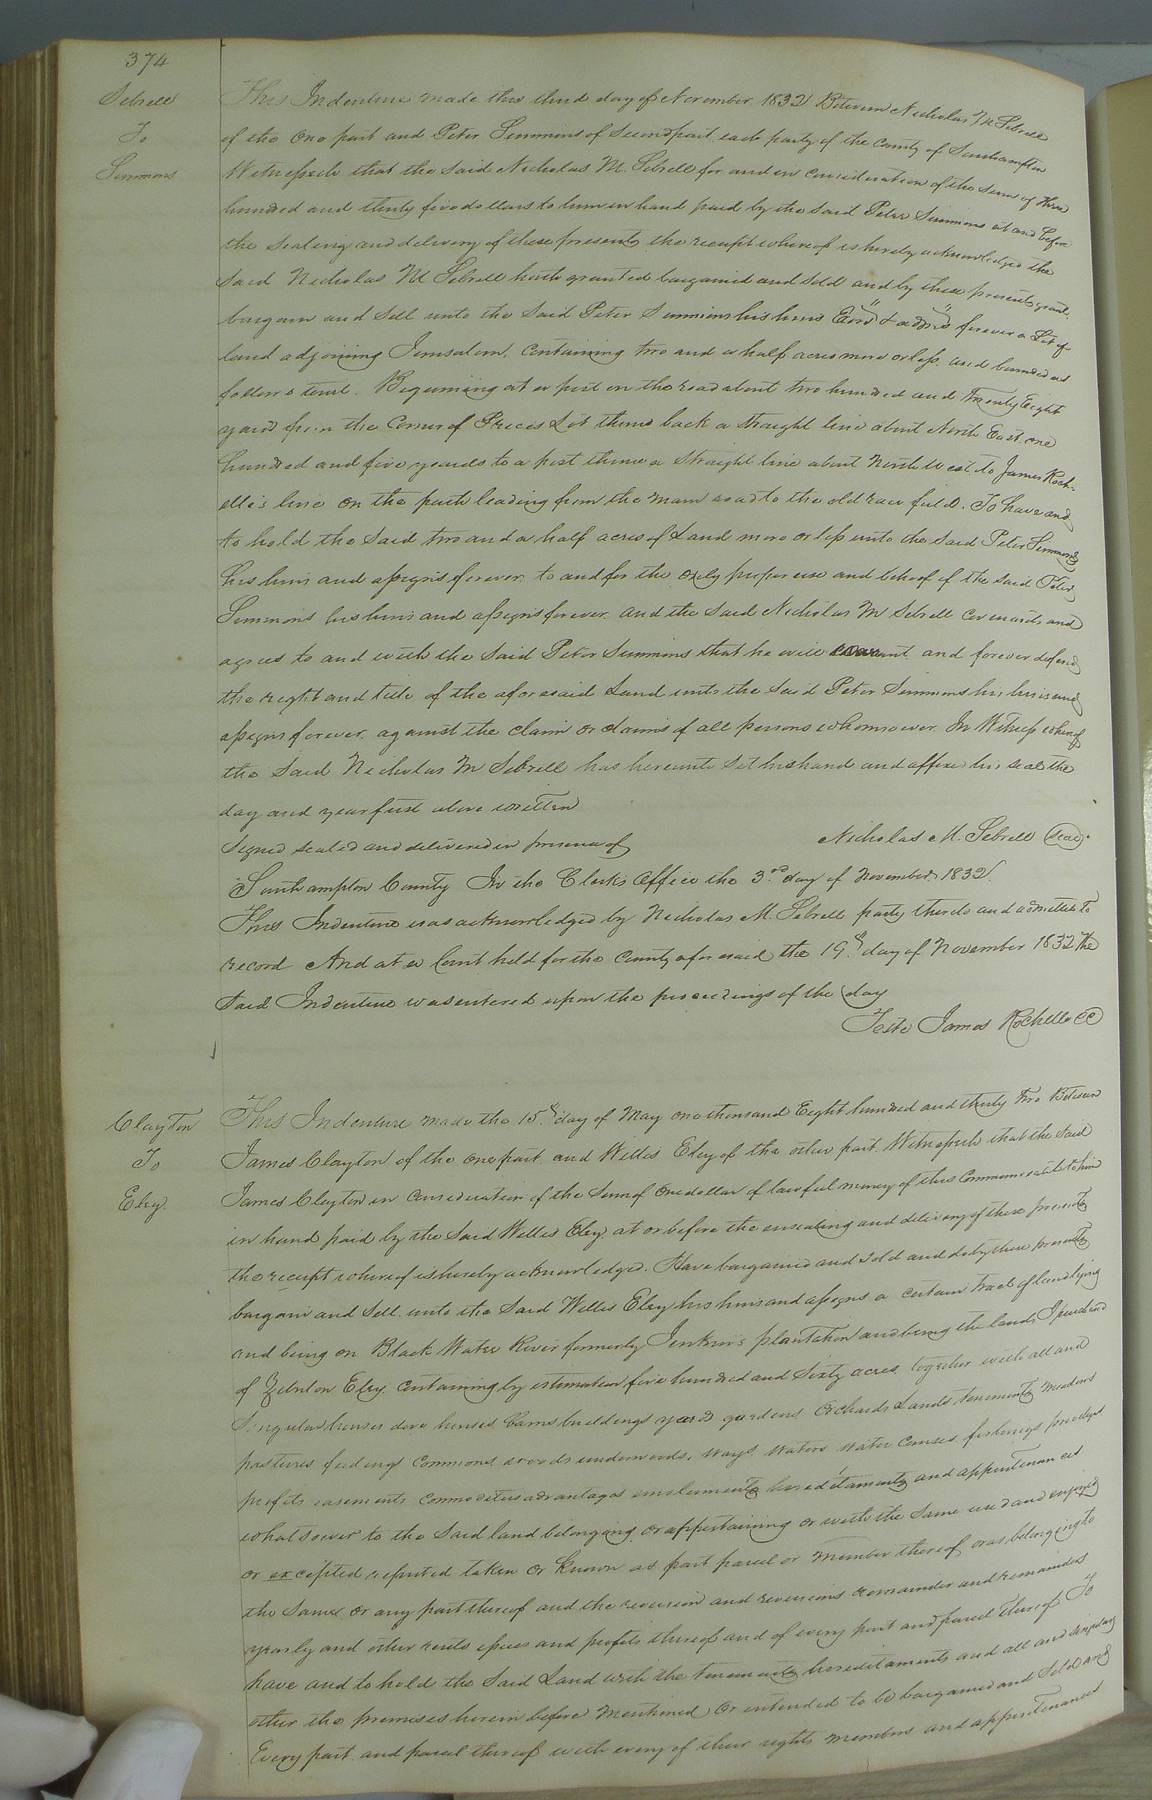 374
Sebrell
To
Simmons
This Indenture made this third day of November 1832 Between Nicholas M Sebrell
of the one part and Peter Simmons of Second part each party of the County of Southampton
Witnesseth that the Said Nicholas M. Sebrell for and in Consideration of the Sum of three
hundred and thirty five dollars to him in hand paid by the Said Peter Simmons at and before
the Sealing and delivery of these presents the receipt whereof is hereby acknowledged the
Said Nicholas M Sebrell hath granted bargained and Sold and by these presents grant
bargain and Sell unto the Said Peter Simmons his heirs Exors & admrs forever a Lot of
land adjoining Jerusalem, Containing two and a half acres more or less and bounded as
follows to wit. Beginning at a post on the road about two hundred and Twenty Eight
yards from the Corner of Prices Lot thence back a Straight line about North East one
hundred and five yards to a post thence a Straight line about North West to James Roch-
elle's line on the path leading from the main road to the old race field. To have and
to hold the Said two and a half acres of Land more or less unto the Said Peter Simmons
his heirs and assigns forever to and for the only proper use and behoof of the Said Peter
Simmons his heirs and assigns forever. and the Said Nicholas M Sebrell Covenants and
agrees to and with the Said Peter Simmons that he will warrant and forever defend
the right and title of the aforesaid Land unto the Said Peter Simmons his heirs and
assigns forever against the claim or claims of all persons whomsoever. In Witness whereof
the Said Nicholas M Sebrell has hereunto Set his hand and affixed his seal the
day and year first above written
Signed sealed and delivered in presence of
Nicholas M. Sebrell Seal
Southampton County In the Clerk's Office the 3rd day of November 1832.
This Indenture was acknowledged by Nicholas M. Sebrell party thereto and admitted to
record And at a Court held for the County aforesaid the 19th day of November 1832 The
Said Indenture was entered upon the proceedings of the day
Teste James Rochelle CC
Clayton
To
Eley.
This Indenture made the 15th day of May one thousand Eight hundred and thirty two Between
James Clayton of the one part and Willis Eley of the other part. Witnesseth that the Said
James Clayton in Consideration of the Sum of one dollar of lawful money of this Commonwealth to him
in hand paid by the Said Willis Eley at or before the ensealing and delivery of these presents
the receipt whereof is hereby acknowledged. Have bargained and Sold and do by these presents
bargain and Sell unto the Said Willis Eley his heirs and assigns a certain tract of land lying
and being on Black Water River formerly Jenkins's plantation and being the lands I purchased
of Zebulon Eley Containing by estimation five hundred and Sixty acres together with all and
Singular houses dove houses barns buildings yards gardens Orchards Lands tenements meadows
pastures feedings Commons woods underwoods, ways waters water Courses fishings privileges
profits easements Commodities advantages emoluments hereditaments and appurtenances
whatsoever to the Said land belonging or appertaining or with the Same used and enjoyed
or excepted reputed taken or Known as part parcel or member thereof or as belonging to
the Same or any part thereof and the reversion and reversions remainder and remainders
yearly and other rents issues and profits thereof and of every part and parcel thereof To
have and to hold the Said Land with the tenements hereditaments and all and Singular
other the premises herein before Mentioned or intended to be bargained and Sold and
Every part and parcel thereof with every of their rights members and appurtenances